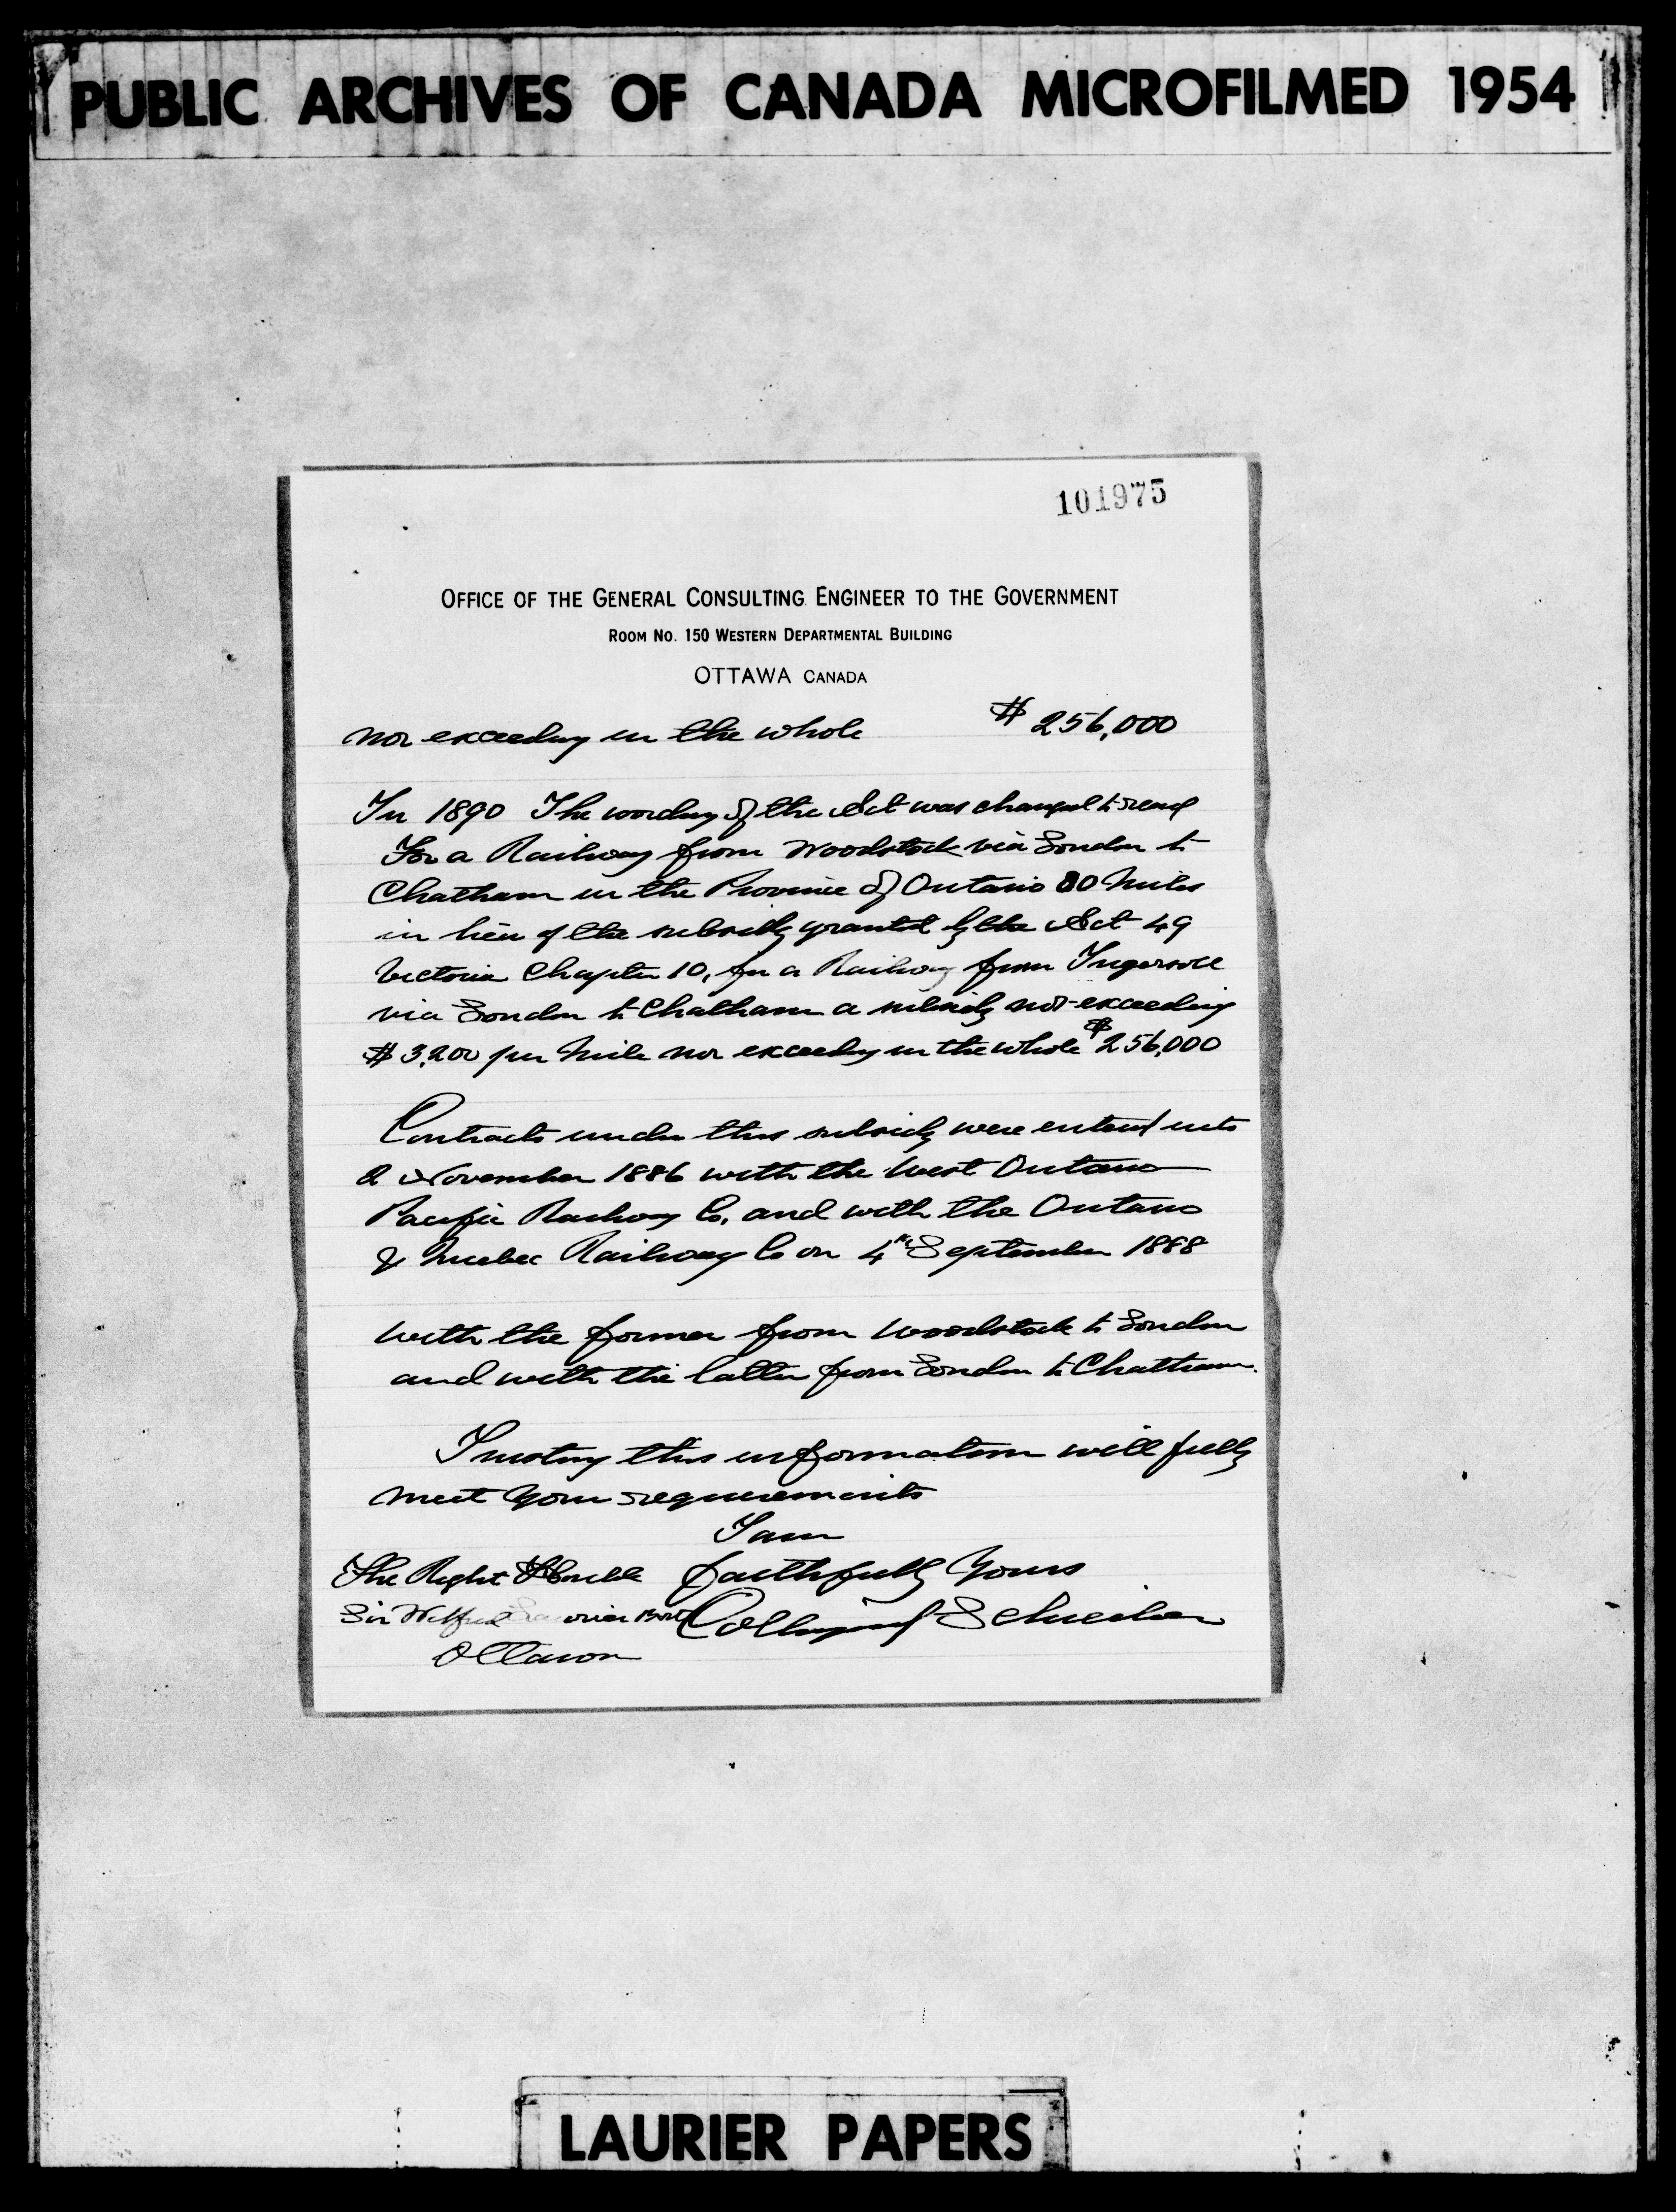 PUBLIC ARCHIVES OF CANADA MICROFILMED 1954
101975
OFFICE OF THE GENERAL CONSULTING ENGINEER TO THE GOVERNMENT
ROOM NO. 150 WESTERN DEPARTMENTAL BUILDING
OTTAWA CANADA
nor exceeding in the whole $256,000
In 1890 The wording of the Act was changed to read
For a Railway from Woodstock via London to
Chatham in the Province of Ontario 80 Miles
in lieu of the subsidy granted by the Act 49
Victoria Chapter 10, for a Railway from Ingersoll
via London to Chatham a subsidy not exceeding
$3,200 per Mile nor exceeding in the whole $256,000
Contracts under this subsidy were entered into
2 November 1886 with the West Ontario
Pacific Railway Co. and with the Ontario
& Quebec Railway Co on 4th September 1888
with the former from Woodstock to London
and with the latter from London to Chatham.
Trusting this information will fully
meet your requirements
I am
The Right Honble faithfully Yours
Sir Wilfrid Laurier Collingwood Schreiber
Ottawa
LAURIER PAPERS